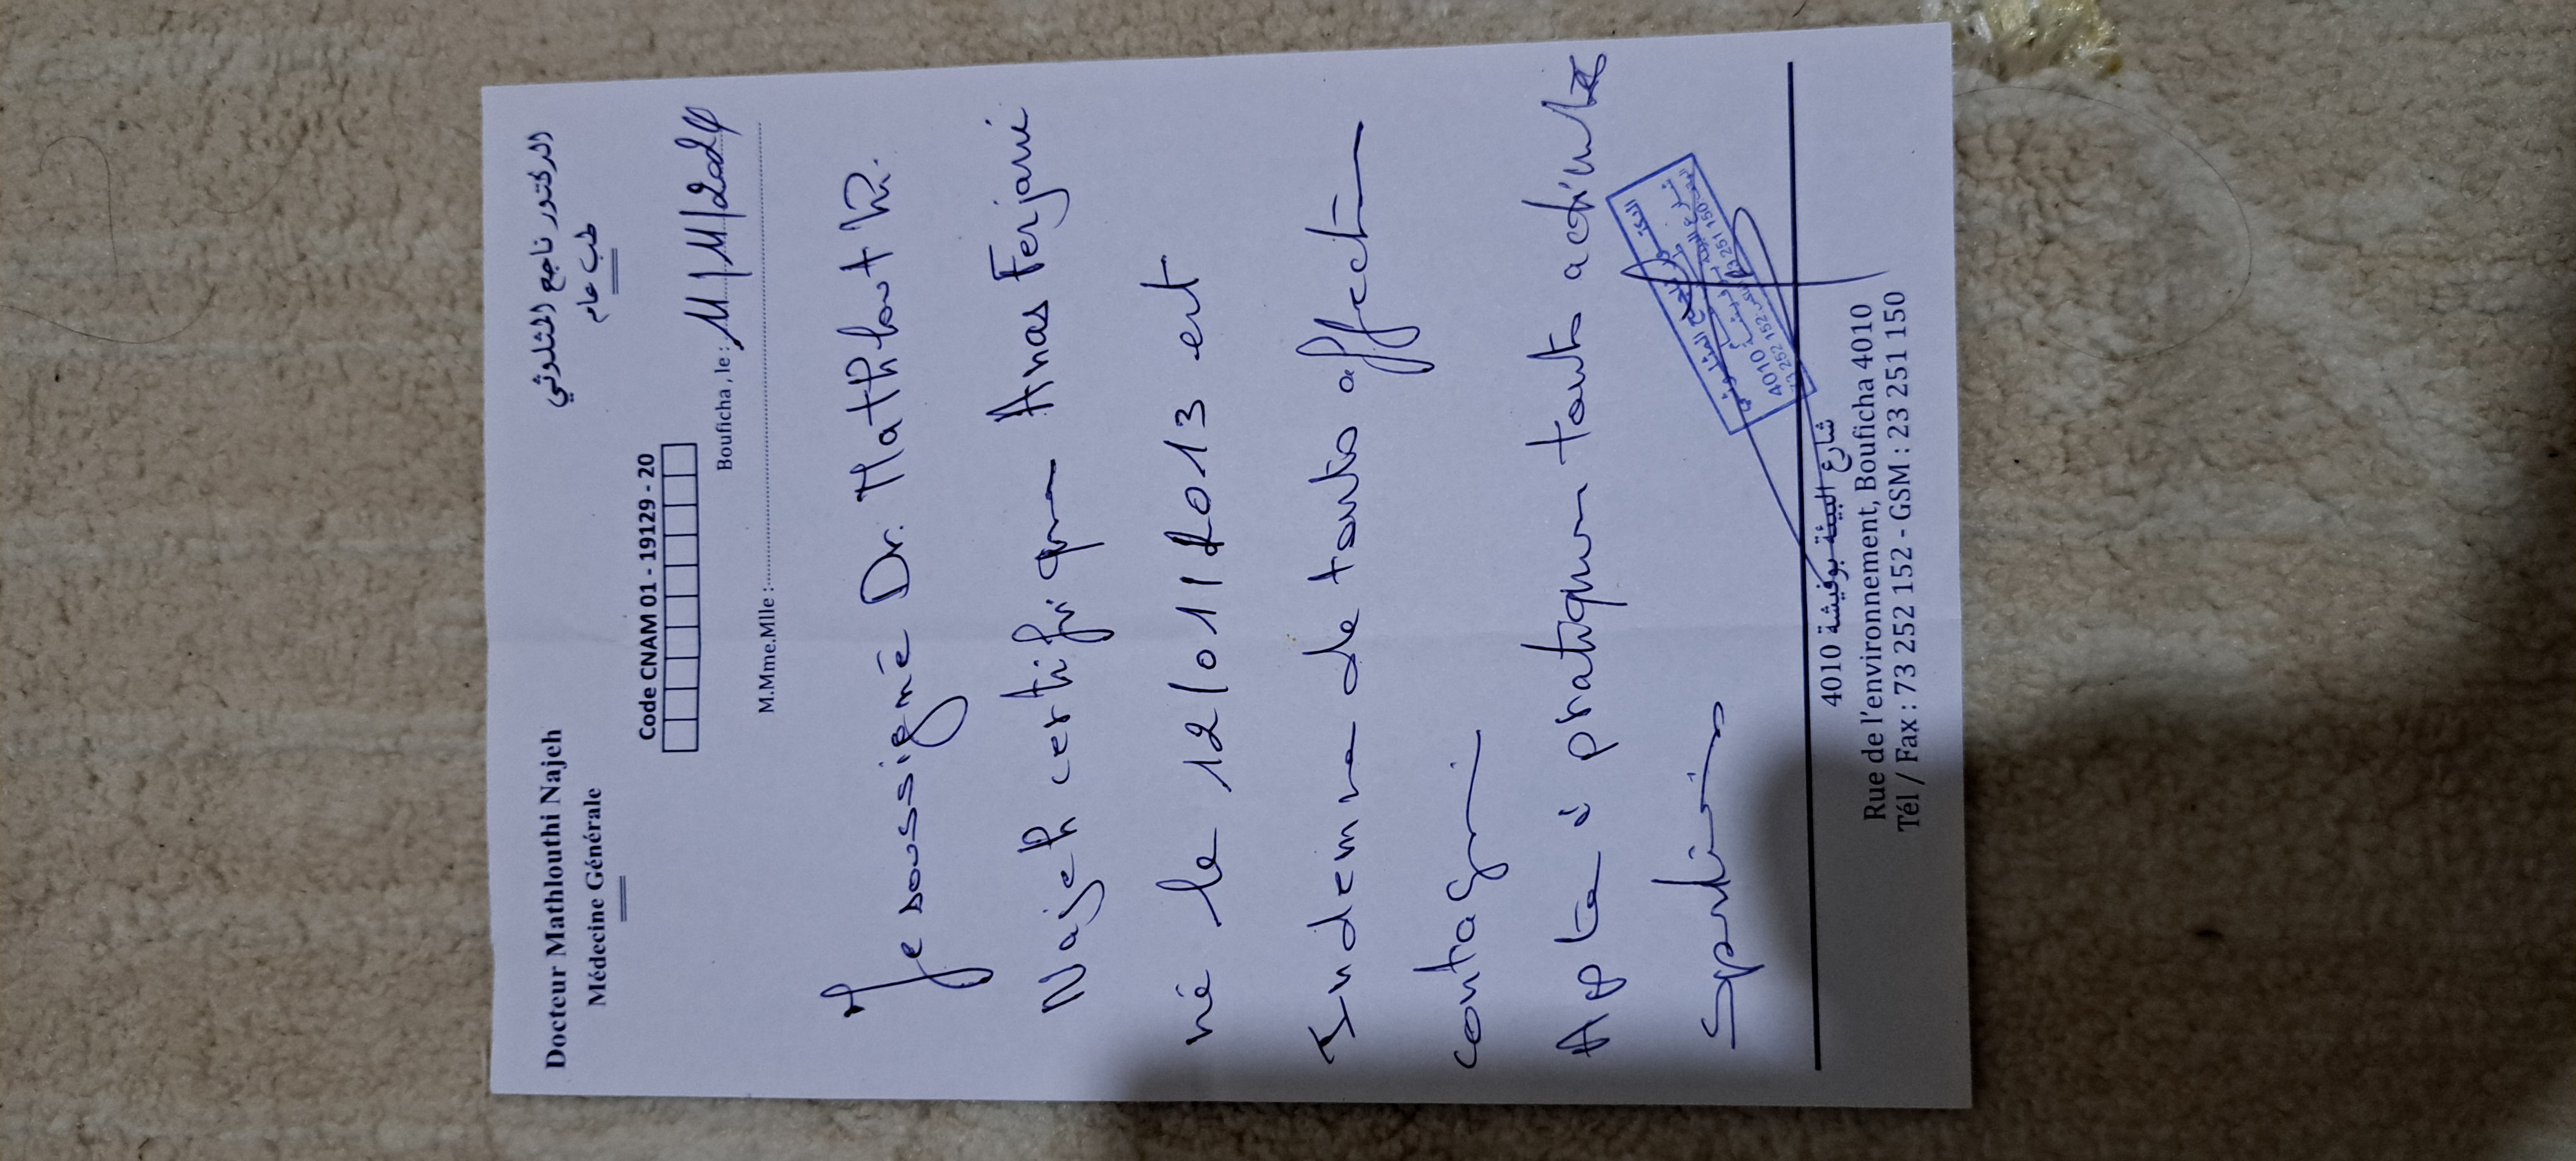 Docteur Mathlouthi Najeh
Médecine Générale
الدكتور ناجح المثلوثي
طب عام
Code CNAM 01 - 19129 - 20
Bouficha, le : 11/11/2024
M.Mme.Mlle :
Je soussigné Dr. Mathlouthi
Najeh certifie que Anas Ferjani
né le 12/01/2013 est
Indemne de toute affection
contagieuse
Apte à pratiquer toute activité
Sportive
4010 شارع البيئة بوفيشة
Rue de l'environnement, Bouficha 4010
Tél / Fax : 73 252 152 - GSM : 23 251 150